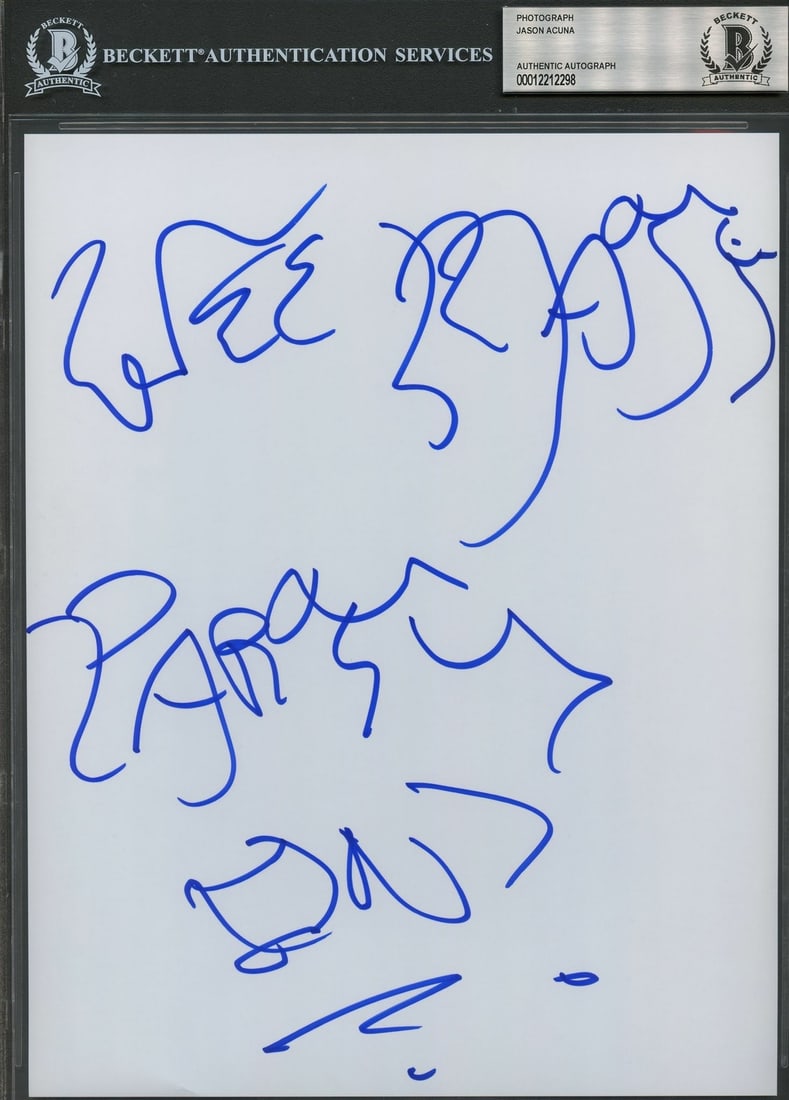 BECKETT
B
AUTHENTIC
BECKETT® AUTHENTICATION SERVICES
PHOTOGRAPH
JASON ACUNA
AUTHENTIC AUTOGRAPH
00012212298
BECKETT
B
AUTHENTIC
WEE MAN
PARTY
ON